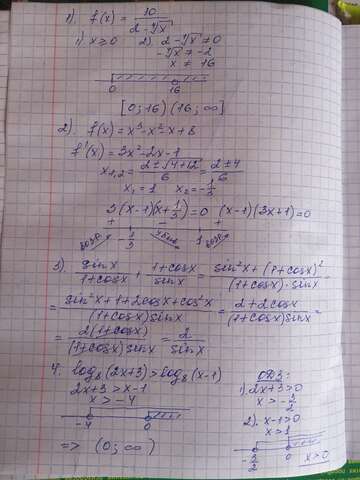 1). f(x) = 10 / (2 - ⁴√x)
1) x ≥ 0 2) 2 - ⁴√x ≠ 0
- ⁴√x ≠ -2
x ≠ 16
0 16
[0; 16) (16; ∞]
2). f(x) = x³ - x² - x + 8
f'(x) = 3x² - 2x - 1
x₁,₂ = (2 ± √(4+12)) / 6 = (2 ± 4) / 6
x₁ = 1 x₂ = -1/3
3(x-1)(x+1/3) = 0 (x-1)(3x+1) = 0
+ - +
возр. -1/3 убыв. 1 возр.
3). sinx/(1+cosx) + (1+cosx)/sinx = (sin²x + (1+cosx)²)/((1+cosx)·sinx) =
= (sin²x + 1 + 2cosx + cos²x)/((1+cosx)sinx) = (2+2cosx)/((1+cosx)sinx) =
= 2(1+cosx)/((1+cosx)sinx) = 2/sinx
4. log₈(2x+3) > log₈(x-1) ОДЗ:
2x+3 > x-1 1). 2x+3>0
x > -4 x > -3/2
-4 0 2). x-1>0
x>1
=> (0; ∞) -3/2 0 x>0